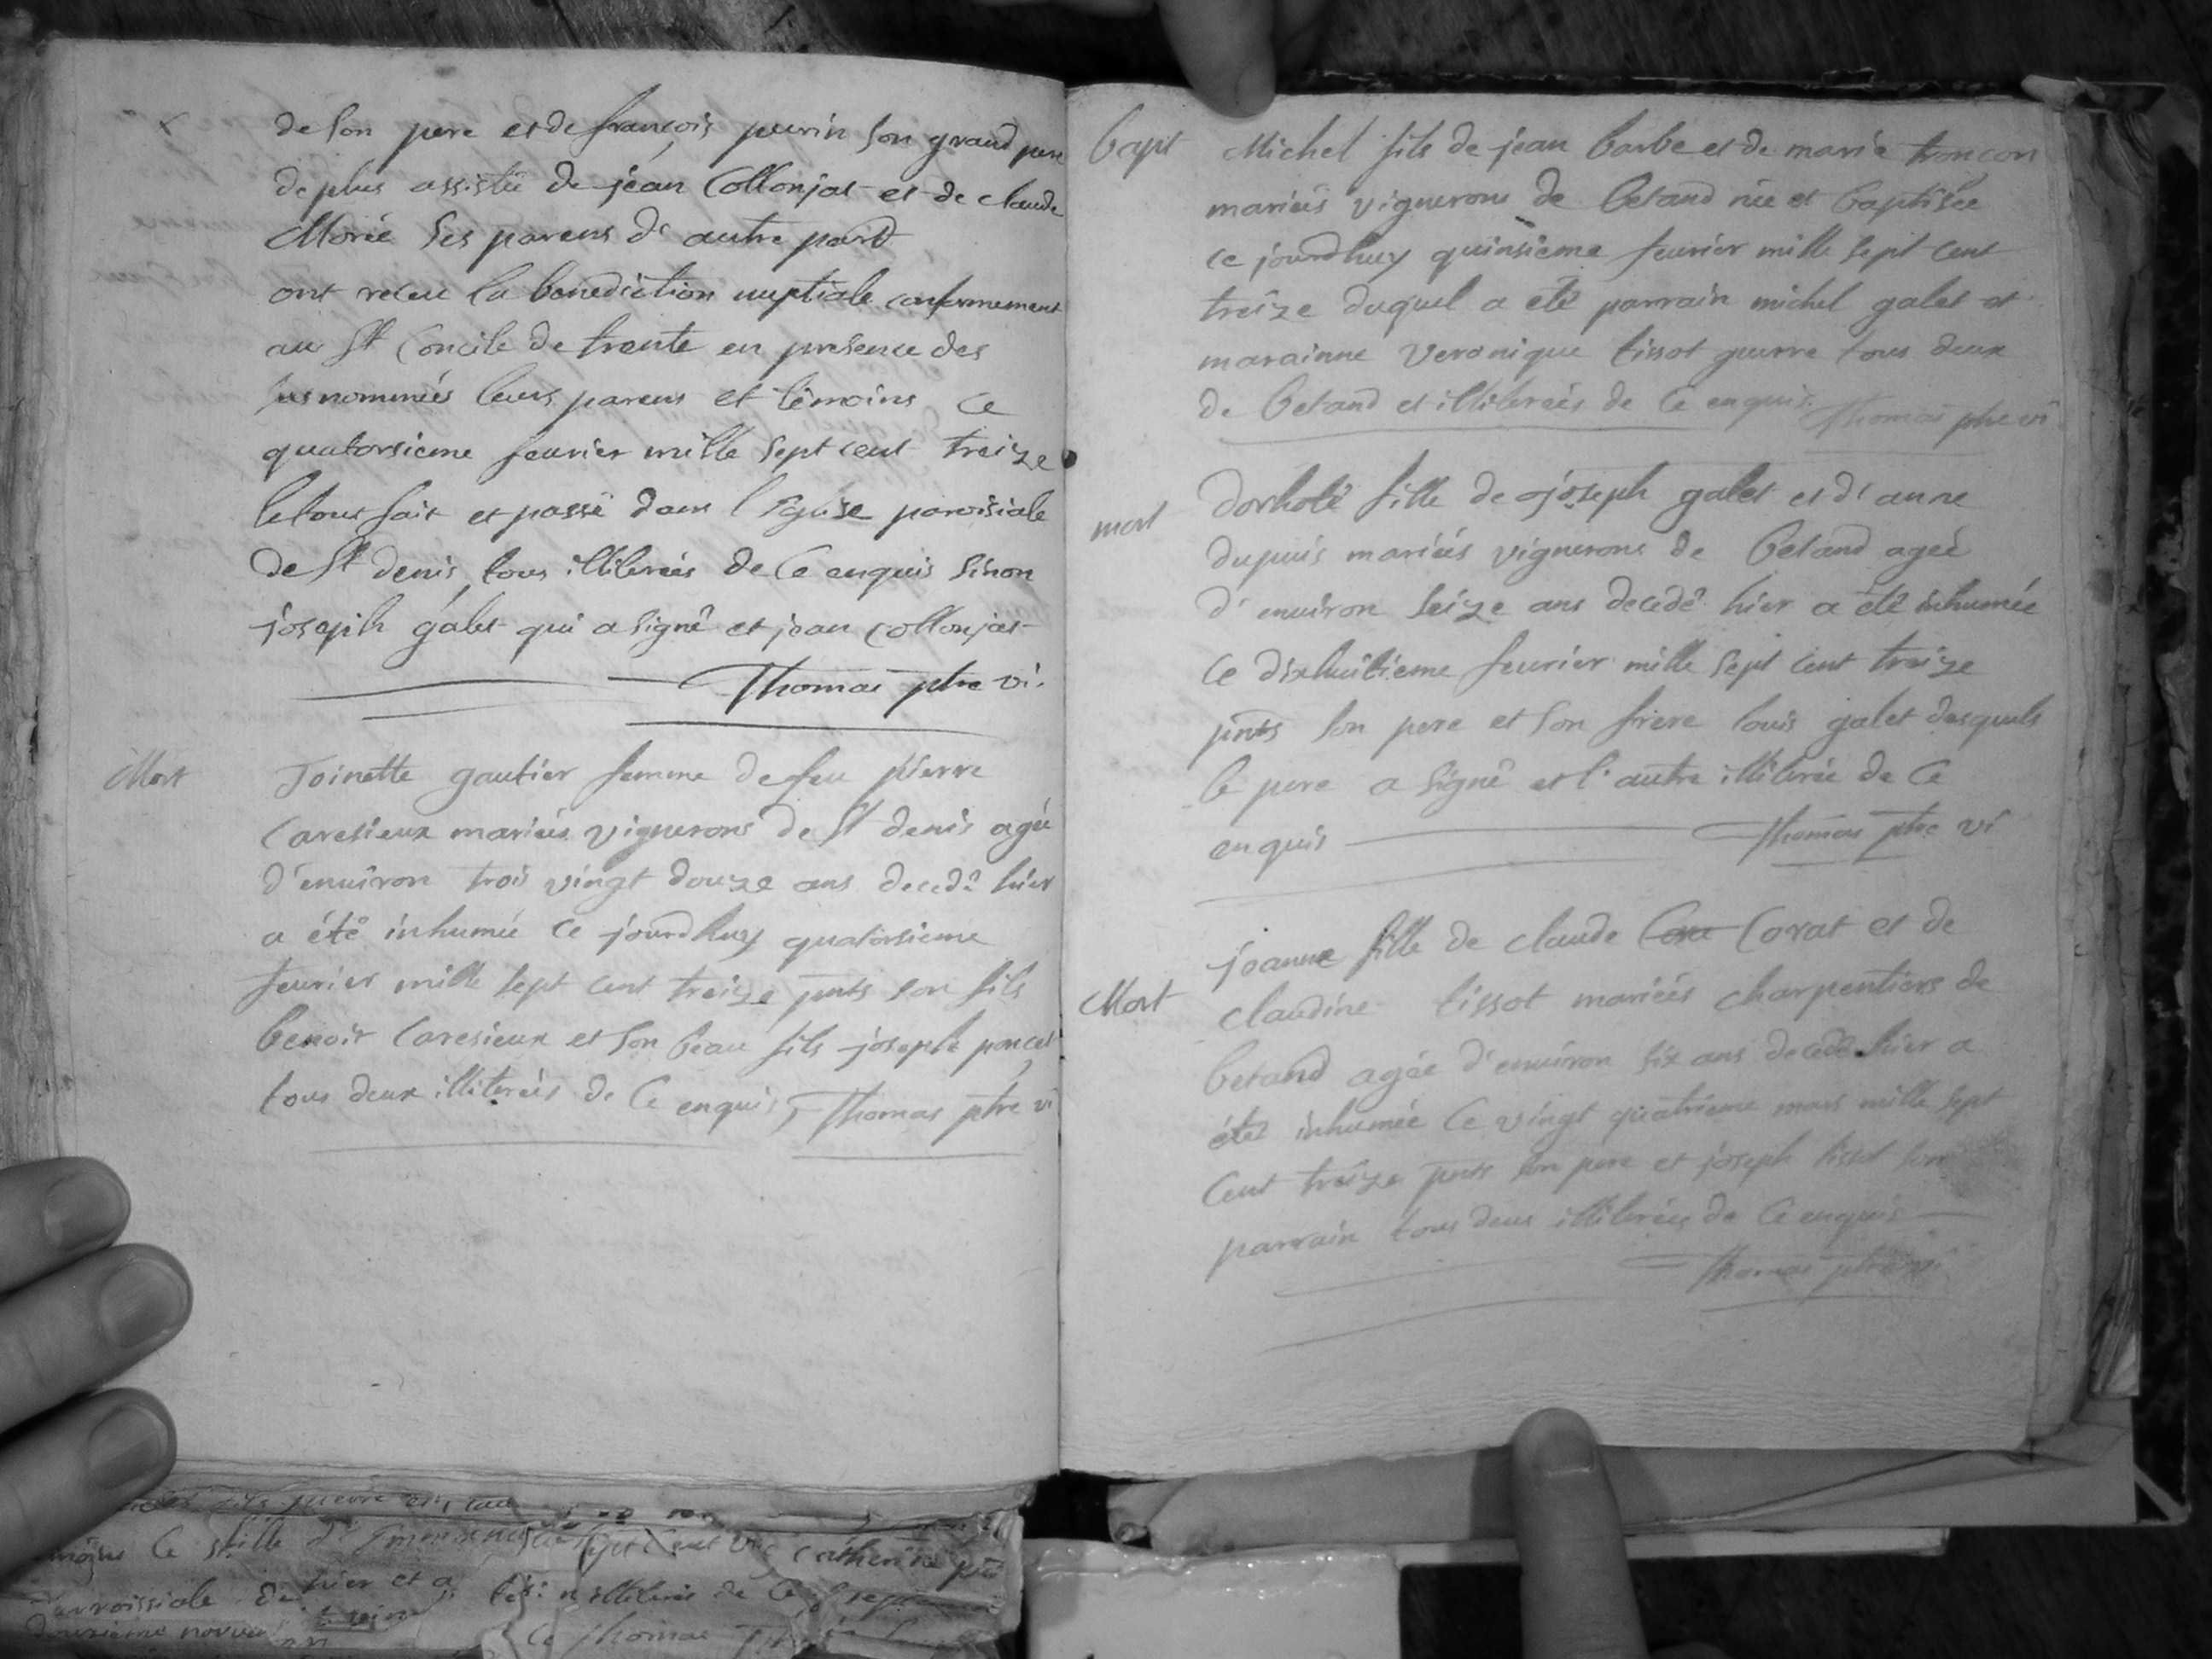 de son pere et de françois perrin son grand pere
de plus assistée de jéan Collonjat et de claude
Morée ses parens d'autre part
ont receu la benediction nuptiale conformement
au St Concile de trente en presence des
susnommés leurs parens et témoins ce
quatorsieme feurier mille sept cent treize
le tout fait et passé dans l'Eglise paroisiale
de St denis tous illiterées de ce enquis sinon
joseph galet qui a signé et jean collonjat
Thomas ptre vi.
Mort
Toinette gautier femme de feu pierre
Caresieux mariés vignerons de St denis agée
d'enuiron trois vingt douze ans decedé hier
a été inhumée ce jourdhuy quatorsieme
feurier mille sept cent treize pnts son fils
benoit Caresieux et son beau fils joseph poncet
tous deux illiterées de ce enquis, Thomas ptre vi
bapt
Michel fils de jean barbe et de marie tronçon
mariés vignerons de betand née et baptisée
ce jourdhuy quinsieme feurier mille sept cent
treize duquel a été parrain michel galet et
marainne Veronique tissot guerre tous deux
de betand et illiterées de ce enquis. Thomas ptre vi
mort
dorhoté fille de joseph galet et d'anne
dupuis mariés vignerons de betand ageé
d'enuiron seize ans decedé hier a été inhumée
ce dixhuitieme feurier mille sept cent treize
pnts son pere et son frere louis galet desquels
le pere a signé et l'autre illiterée de ce
enquis Thomas ptre vi
Mort
joanne fille de claude Cora Corat et de
claudine tissot mariés charpentiers de
betand agée d'enuiron six ans decedé hier a
été inhumée ce vingt quatrieme mars mille sept
cent treize pnts son pere et joseph tissot son
parrain tous deux illiterées de ce enquis
Thomas ptre vi